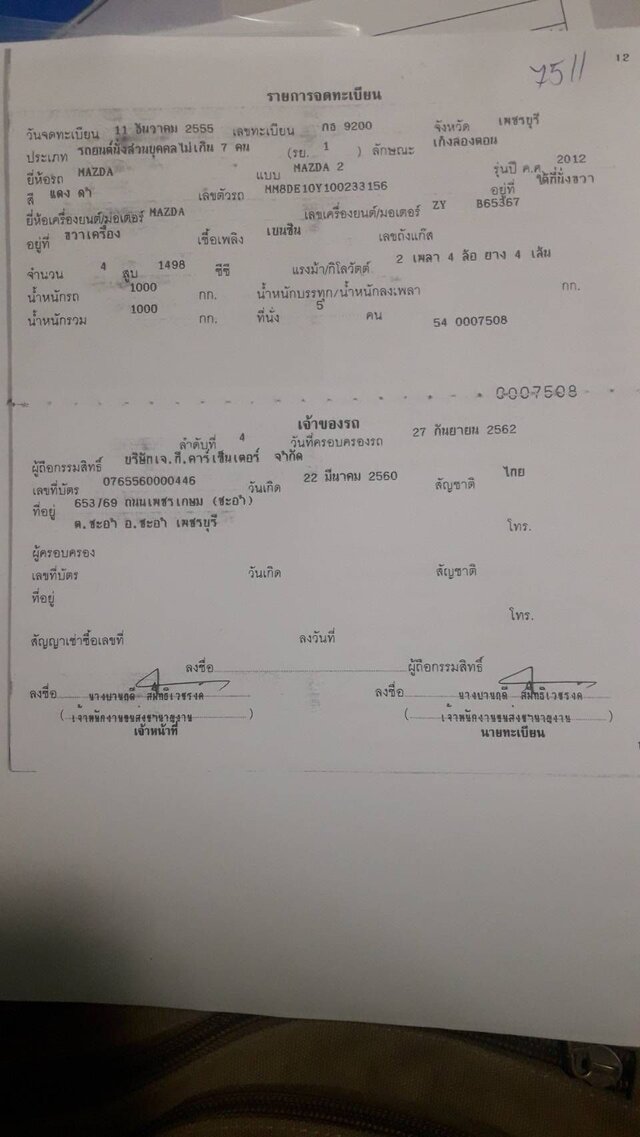 12
7511
รายการจดทะเบียน
วันจดทะเบียน 11 ธันวาคม 2555 เลขทะเบียน กธ 9200 จังหวัด เพชรบุรี
ประเภท รถยนต์นั่งส่วนบุคคลไม่เกิน 7 คน (รย. 1 ) ลักษณะ เก๋งสองตอน
ยี่ห้อรถ MAZDA แบบ MAZDA 2 รุ่นปี ค.ศ. 2012
สี แดง ดำ เลขตัวรถ MM8DE10Y100233156 อยู่ที่ ใต้ที่นั่งขวา
ยี่ห้อเครื่องยนต์/มอเตอร์ MAZDA เลขเครื่องยนต์/มอเตอร์ ZY B65367
อยู่ที่ ขวาเครื่อง เชื้อเพลิง เบนซิน เลขถังแก๊ส
จำนวน 4 สูบ 1498 ซีซี แรงม้า/กิโลวัตต์ 2 เพลา 4 ล้อ ยาง 4 เส้น
น้ำหนักรถ 1000 กก. น้ำหนักบรรทุก/น้ำหนักลงเพลา กก.
น้ำหนักรวม 1000 กก. ที่นั่ง 5 คน 54 0007508
0007508
เจ้าของรถ
ลำดับที่ 4 วันที่ครอบครองรถ 27 กันยายน 2562
ผู้ถือกรรมสิทธิ์ บริษัทเจ.ที.คาร์เซ็นเตอร์ จำกัด
เลขที่บัตร 0765560000446 วันเกิด 22 มีนาคม 2560 สัญชาติ ไทย
ที่อยู่ 653/69 ถนนเพชรเกษม (ชะอำ)
ต.ชะอำ อ.ชะอำ เพชรบุรี โทร.
ผู้ครอบครอง
เลขที่บัตร วันเกิด สัญชาติ
ที่อยู่
โทร.
สัญญาเช่าซื้อเลขที่ ลงวันที่
ลงชื่อ ผู้ถือกรรมสิทธิ์
ลงชื่อ ลงชื่อ
(เจ้าพนักงานขนส่งชำนาญงาน) (เจ้าพนักงานขนส่งชำนาญงาน)
เจ้าหน้าที่ นายทะเบียน